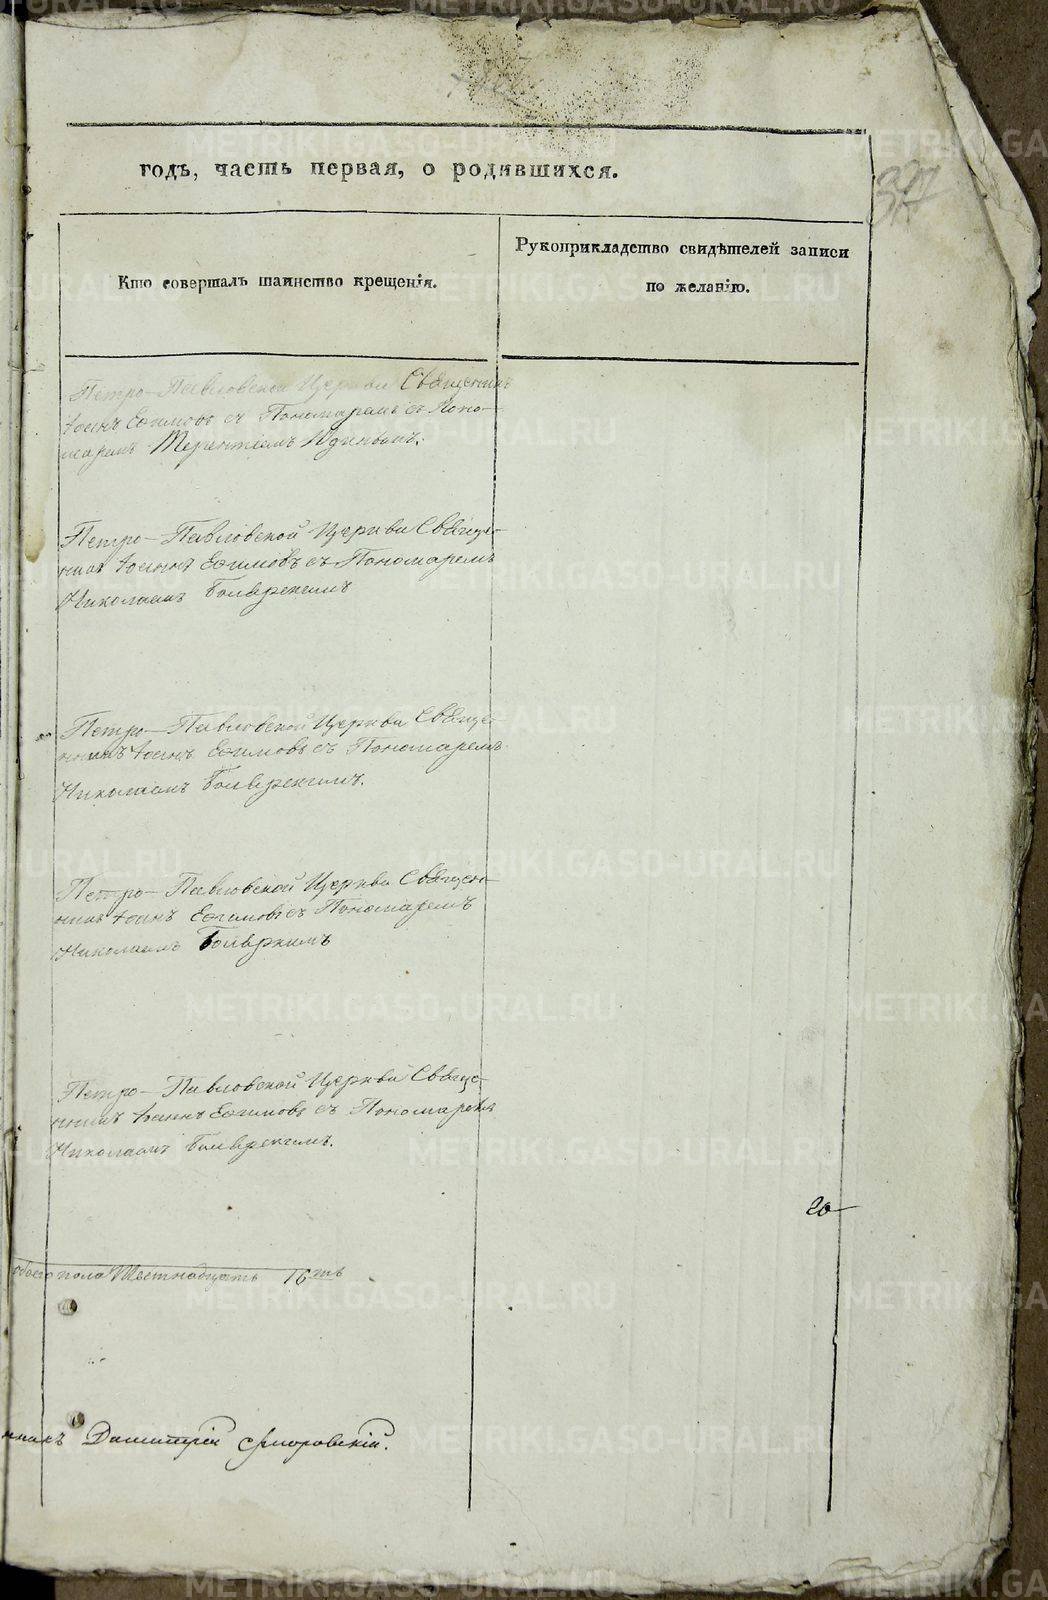 годъ, часть первая, о родившихся.
Кто совершалъ таинство крещенія.
Рукоприкладство свидѣтелей записи
по желанію.
Петро-Павловской Церкви Священникъ
Іоаннъ Ефимовъ съ Пономаремъ
Терентіемъ Юдинымъ.
Петро-Павловской Церкви Священ-
никъ Іоаннъ Ефимовъ съ Пономаремъ
Николаемъ
Петро-Павловской Церкви Священ-
никъ Іоаннъ Ефимовъ съ Пономаремъ
Николаемъ
Петро-Павловской Церкви Священ-
никъ Іоаннъ Ефимовъ съ Пономаремъ
Николаемъ
Петро-Павловской Церкви Священ-
никъ Іоаннъ Ефимовъ съ Пономаремъ
Николаемъ
20
обоего пола Шестнадцать 16ть
Димитрій Флоровскій.
METRIKI.GASO-URAL.RU